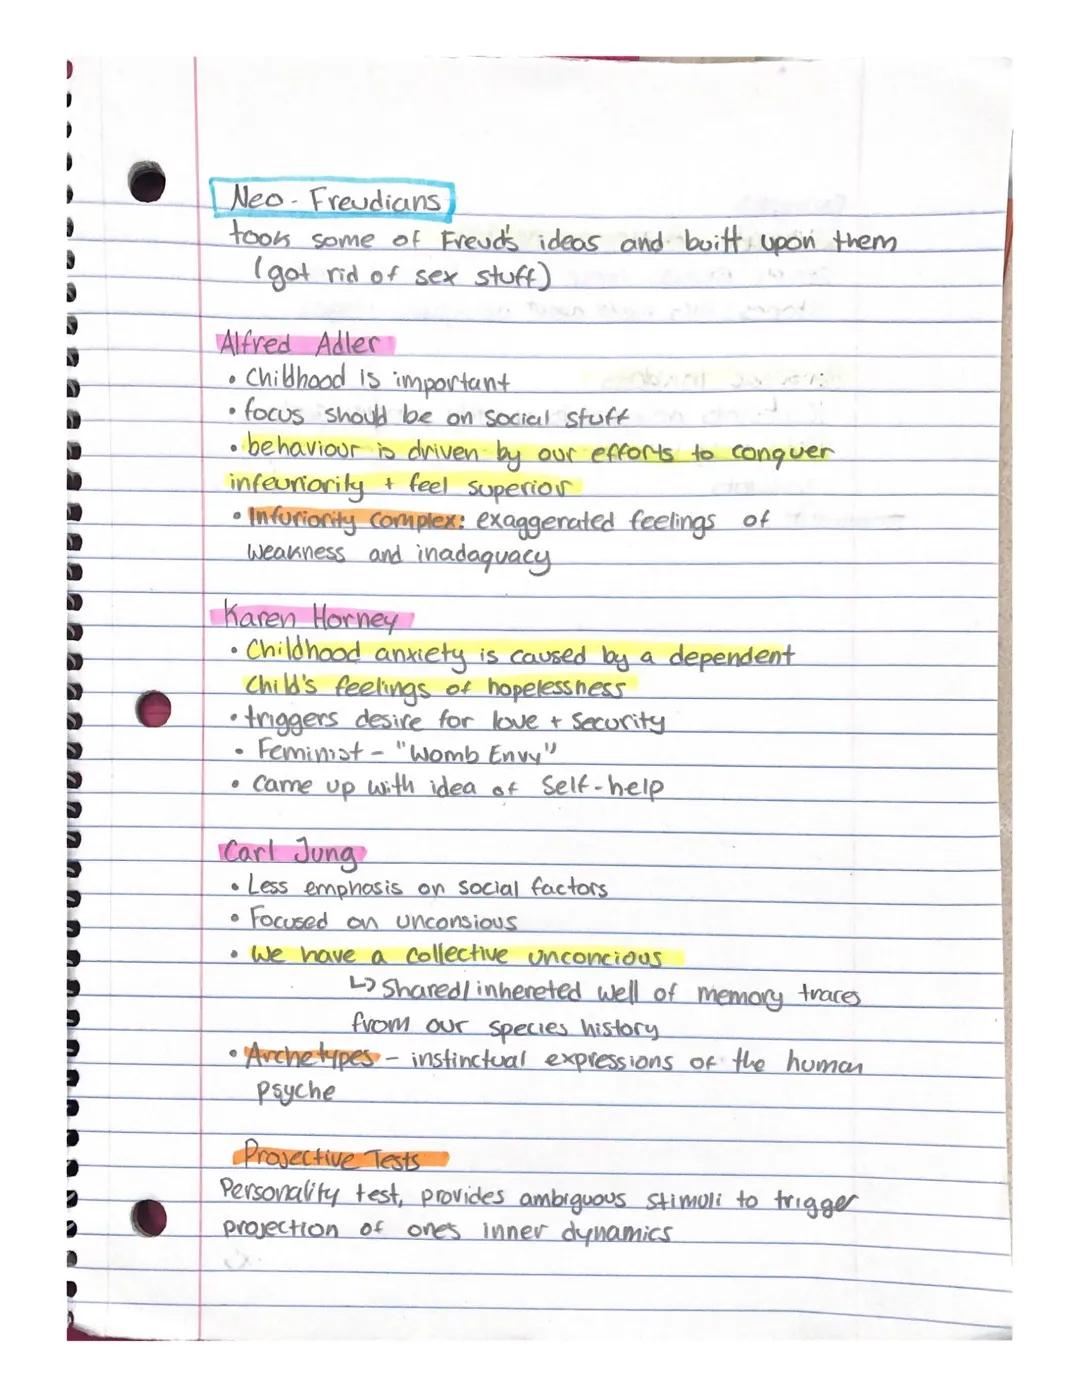 Neo-Freudians
took some of Freud's ideas and built upon them
(got rid of sex stuff)
Alfred Adler
• Childhood is important
• focus should be on social stuff
• behaviour is driven by our efforts to conquer
infeuriority + feel superior
• Infuriority complex: exaggerated feelings of
weakness and inadaquacy
Karen Horney
• Childhood anxiety is caused by a dependent
child's feelings of hopelessness
• triggers desire for love + security
• Feminist - "Womb Envy"
• came up with idea of Self-help
Carl Jung
• Less emphasis on social factors
• Focused on unconsious
• We have a collective unconcious
↳ Shared/inhereted well of memory traces
from our species history
• Archetypes - instinctual expressions of the human
psyche
Projective Tests
Personality test, provides ambiguous stimuli to trigger
projection of ones inner dynamics